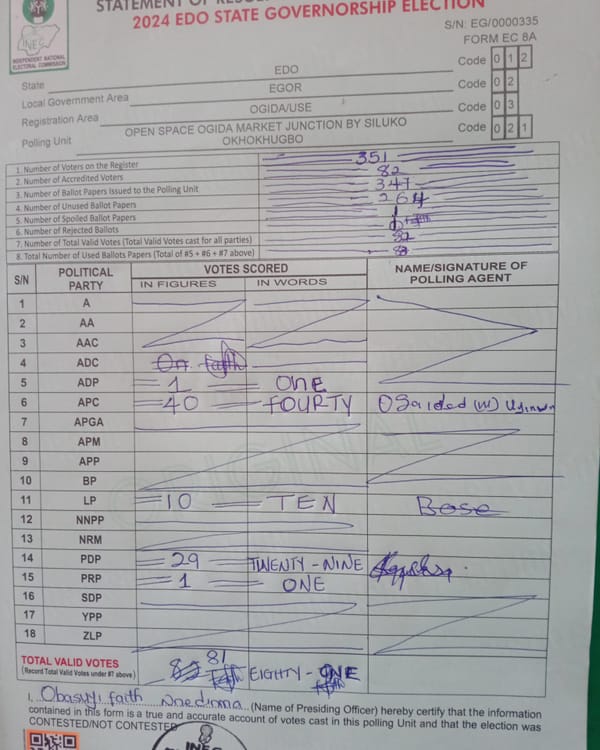 STATEMENT OF RESUL
2024 EDO STATE GOVERNORSHIP ELECTION
INEC
INDEPENDENT NATIONAL
ELECTORAL COMMISSION
S/N: EG/0000335
FORM EC 8A
State EDO Code 0 1 2
Local Government Area EGOR Code 0 2
Registration Area OGIDA/USE Code 0 3
Polling Unit OPEN SPACE OGIDA MARKET JUNCTION BY SILUKO Code 0 2 1
OKHOKHUGBO
1. Number of Voters on the Register 351
2. Number of Accredited Voters 82
3. Number of Ballot Papers Issued to the Polling Unit 347
4. Number of Unused Ballot Papers 264
5. Number of Spoiled Ballot Papers 1
6. Number of Rejected Ballots
7. Number of Total Valid Votes (Total Valid Votes cast for all parties)
8. Total Number of Used Ballots Papers (Total of #5 + #6 + #7 above)
S/N POLITICAL PARTY VOTES SCORED NAME/SIGNATURE OF POLLING AGENT
IN FIGURES IN WORDS
1 A
2 AA
3 AAC
4 ADC
5 ADP 1 ONE
6 APC 40 FOURTY
7 APGA
8 APM
9 APP
10 BP
11 LP 10 TEN Bose
12 NNPP
13 NRM
14 PDP 29 TWENTY-NINE
15 PRP 1 ONE
16 SDP
17 YPP
18 ZLP
ORIGINAL
TOTAL VALID VOTES 81 EIGHTY-ONE
(Record Total Valid Votes under #7 above) Faith
I, Obasuyi Faith Nnedinma (Name of Presiding Officer) hereby certify that the information
contained in this form is a true and accurate account of votes cast in this polling Unit and that the election was
CONTESTED/NOT CONTESTED
INEC